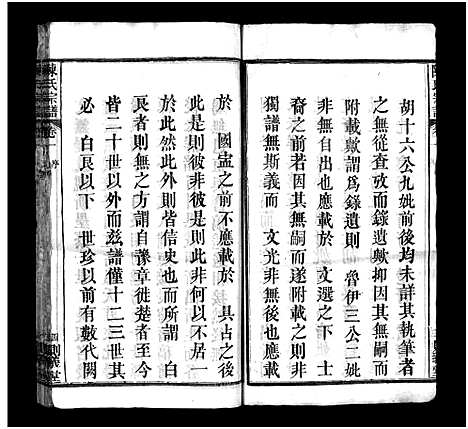 胡十六公九妣前後均未詳其執筆者
之無從查攷而錄遺歟抑因其無嗣而
附載歟謂爲錄遺則　魯伊三公二妣
非無自出也亦應載於　文選之下　士
裔之前若因其無嗣而附載之則　士
獨譜無斯義而　文光非無後也應載
於　國盂之前不應載於　具占之後
此是則彼非彼是則此非何以不居一
於此然此外則皆信史也而所謂　白
艮者則無之方謂自豫章徙楚者至今
皆二十世以外而茲譜僅十二三世其
必　白艮以下　世珍以前有數代闕
陳氏宗譜
卷一
序
四